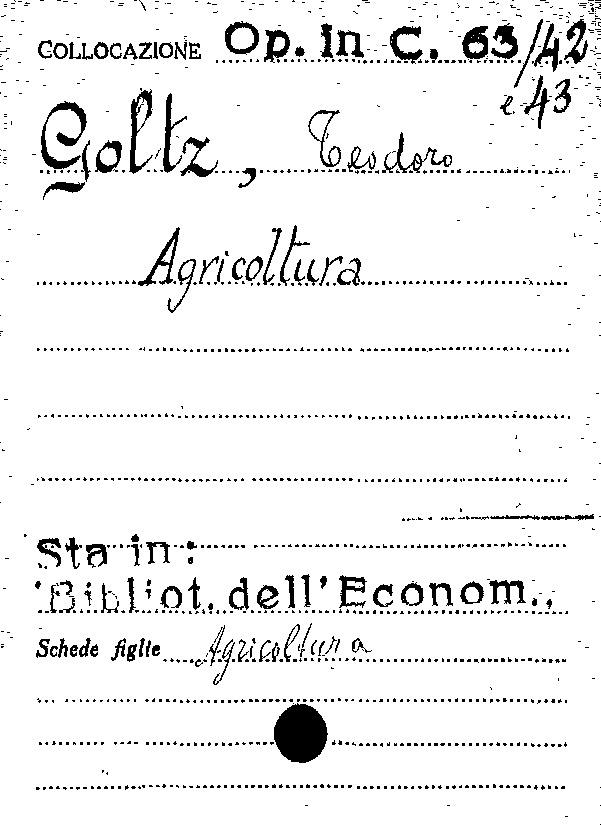 COLLOCAZIONE Op. in C. 63/42
e 43
Goltz, Teodoro
Agricoltura
Sta in:
'Bibliot. dell'Econom.,
Schede figlie Agricoltura